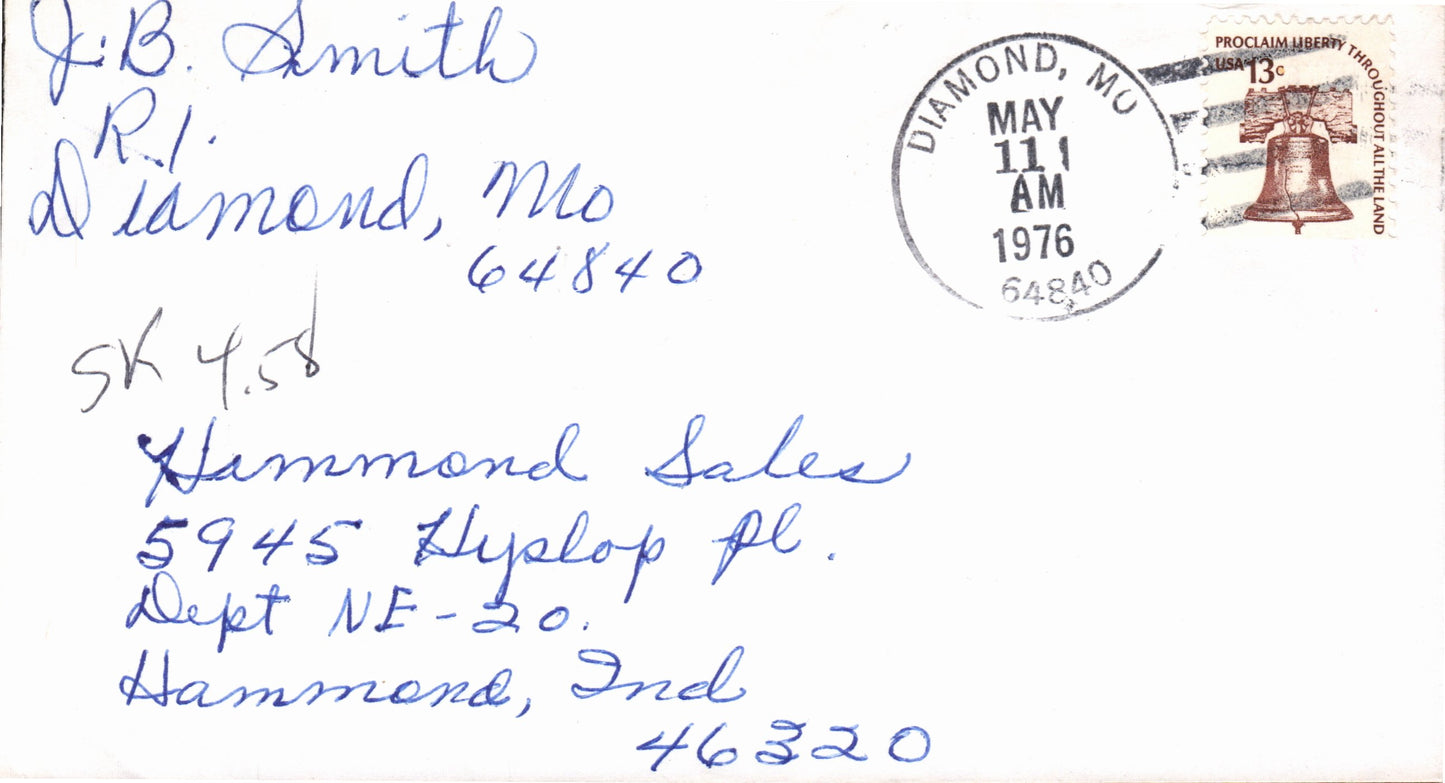 J.B. Smith
R 1.
Diamond, Mo
64840
DIAMOND, MO
MAY
11 1
AM
1976
64840
PROCLAIM LIBERTY THROUGHOUT ALL THE LAND
USA 13c
SK 4.58
Hammond Sales
5945 Hyslop Pl.
Dept NE-20.
Hammond, Ind
46320